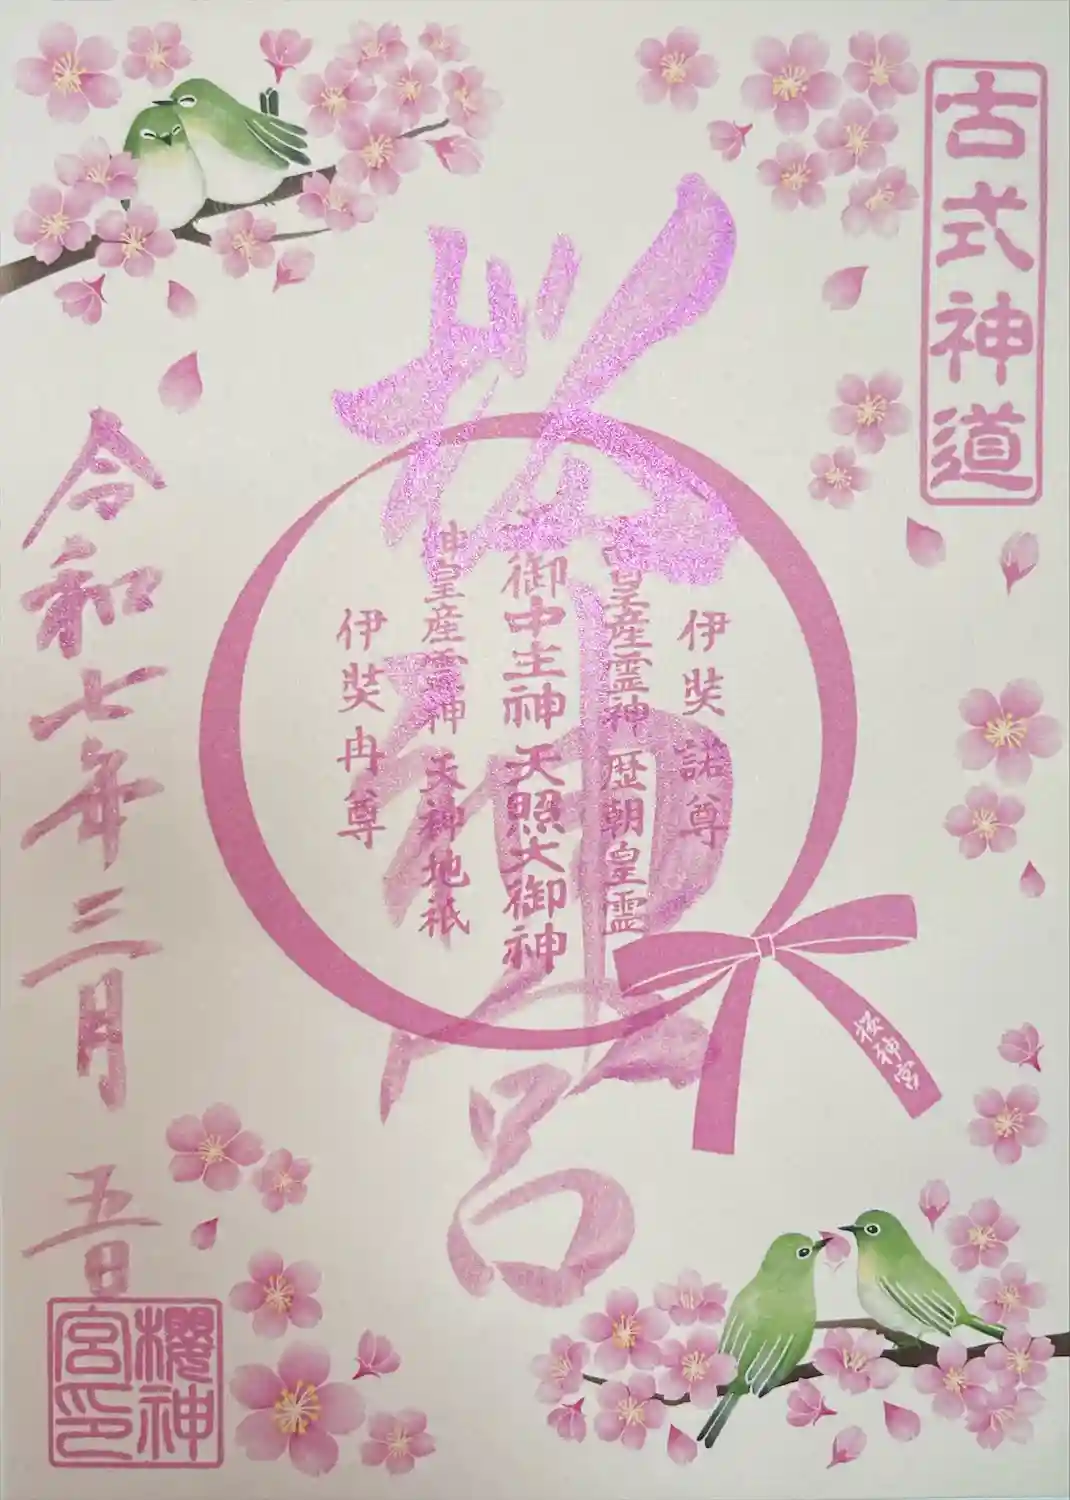 古式神道
桜神宮
伊奘諾尊
皇産霊神 歴朝皇霊
御中主神 天照大御神
神皇産霊神 天神地祇
伊奘冉尊
桜神宮
令和七年三月 五日
櫻神宮印